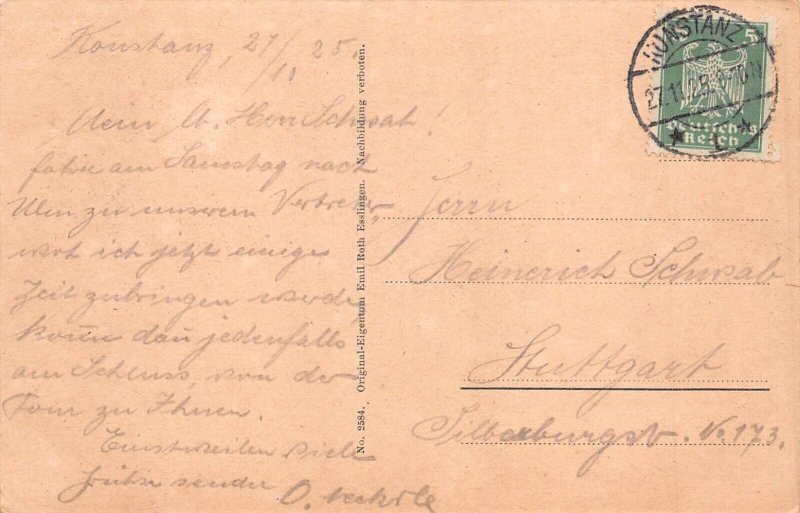 Konstanz, 27/10 25.
Mein l. Herr Schwab!
fahre am Samstag nach
Ulm zu unserem Vertreter,
wo ich jetzt einige
Zeit zubringen werde
jedenfalls
am Schluss, von der
Tour zu Ihnen.
Einstweilen viele
Grüße sendet
O.
No. 2584. Original-Eigentum Emil Roth Esslingen. Nachbildung verboten.
KONSTANZ
27.11.25.
* 1 *
5
Deutsches
Reich
Herrn
Heinerich Schwab
Stuttgart
Silberburgstr. No. 173.